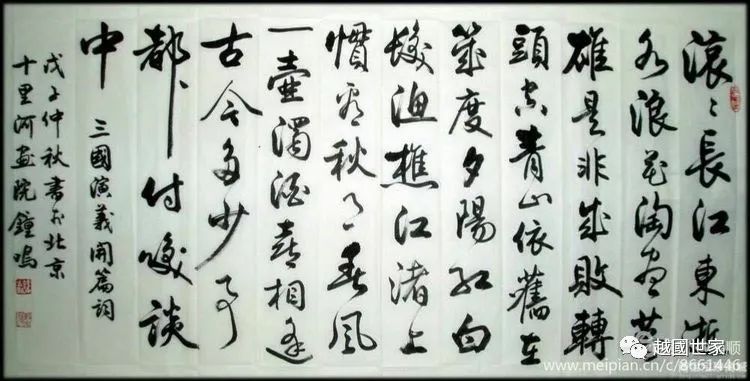 滚〻長江東逝
水浪花淘盡英
雄是非成敗轉
頭空青山依舊在
幾度夕陽紅白
髮漁樵江渚上
慣看秋月春風
一壺濁酒喜相逢
古今多少事
都〻付笑談
中
三國演義開篇詞
戊子仲秋書於北京
十里河畫院鐘鳴
越國世家
www.meipian.cn/c/8661446